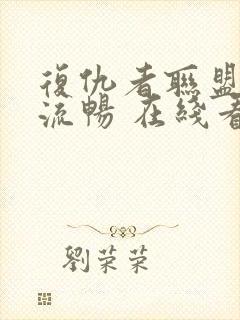 復仇者聯盟
流暢 在綫看
劉荣荣